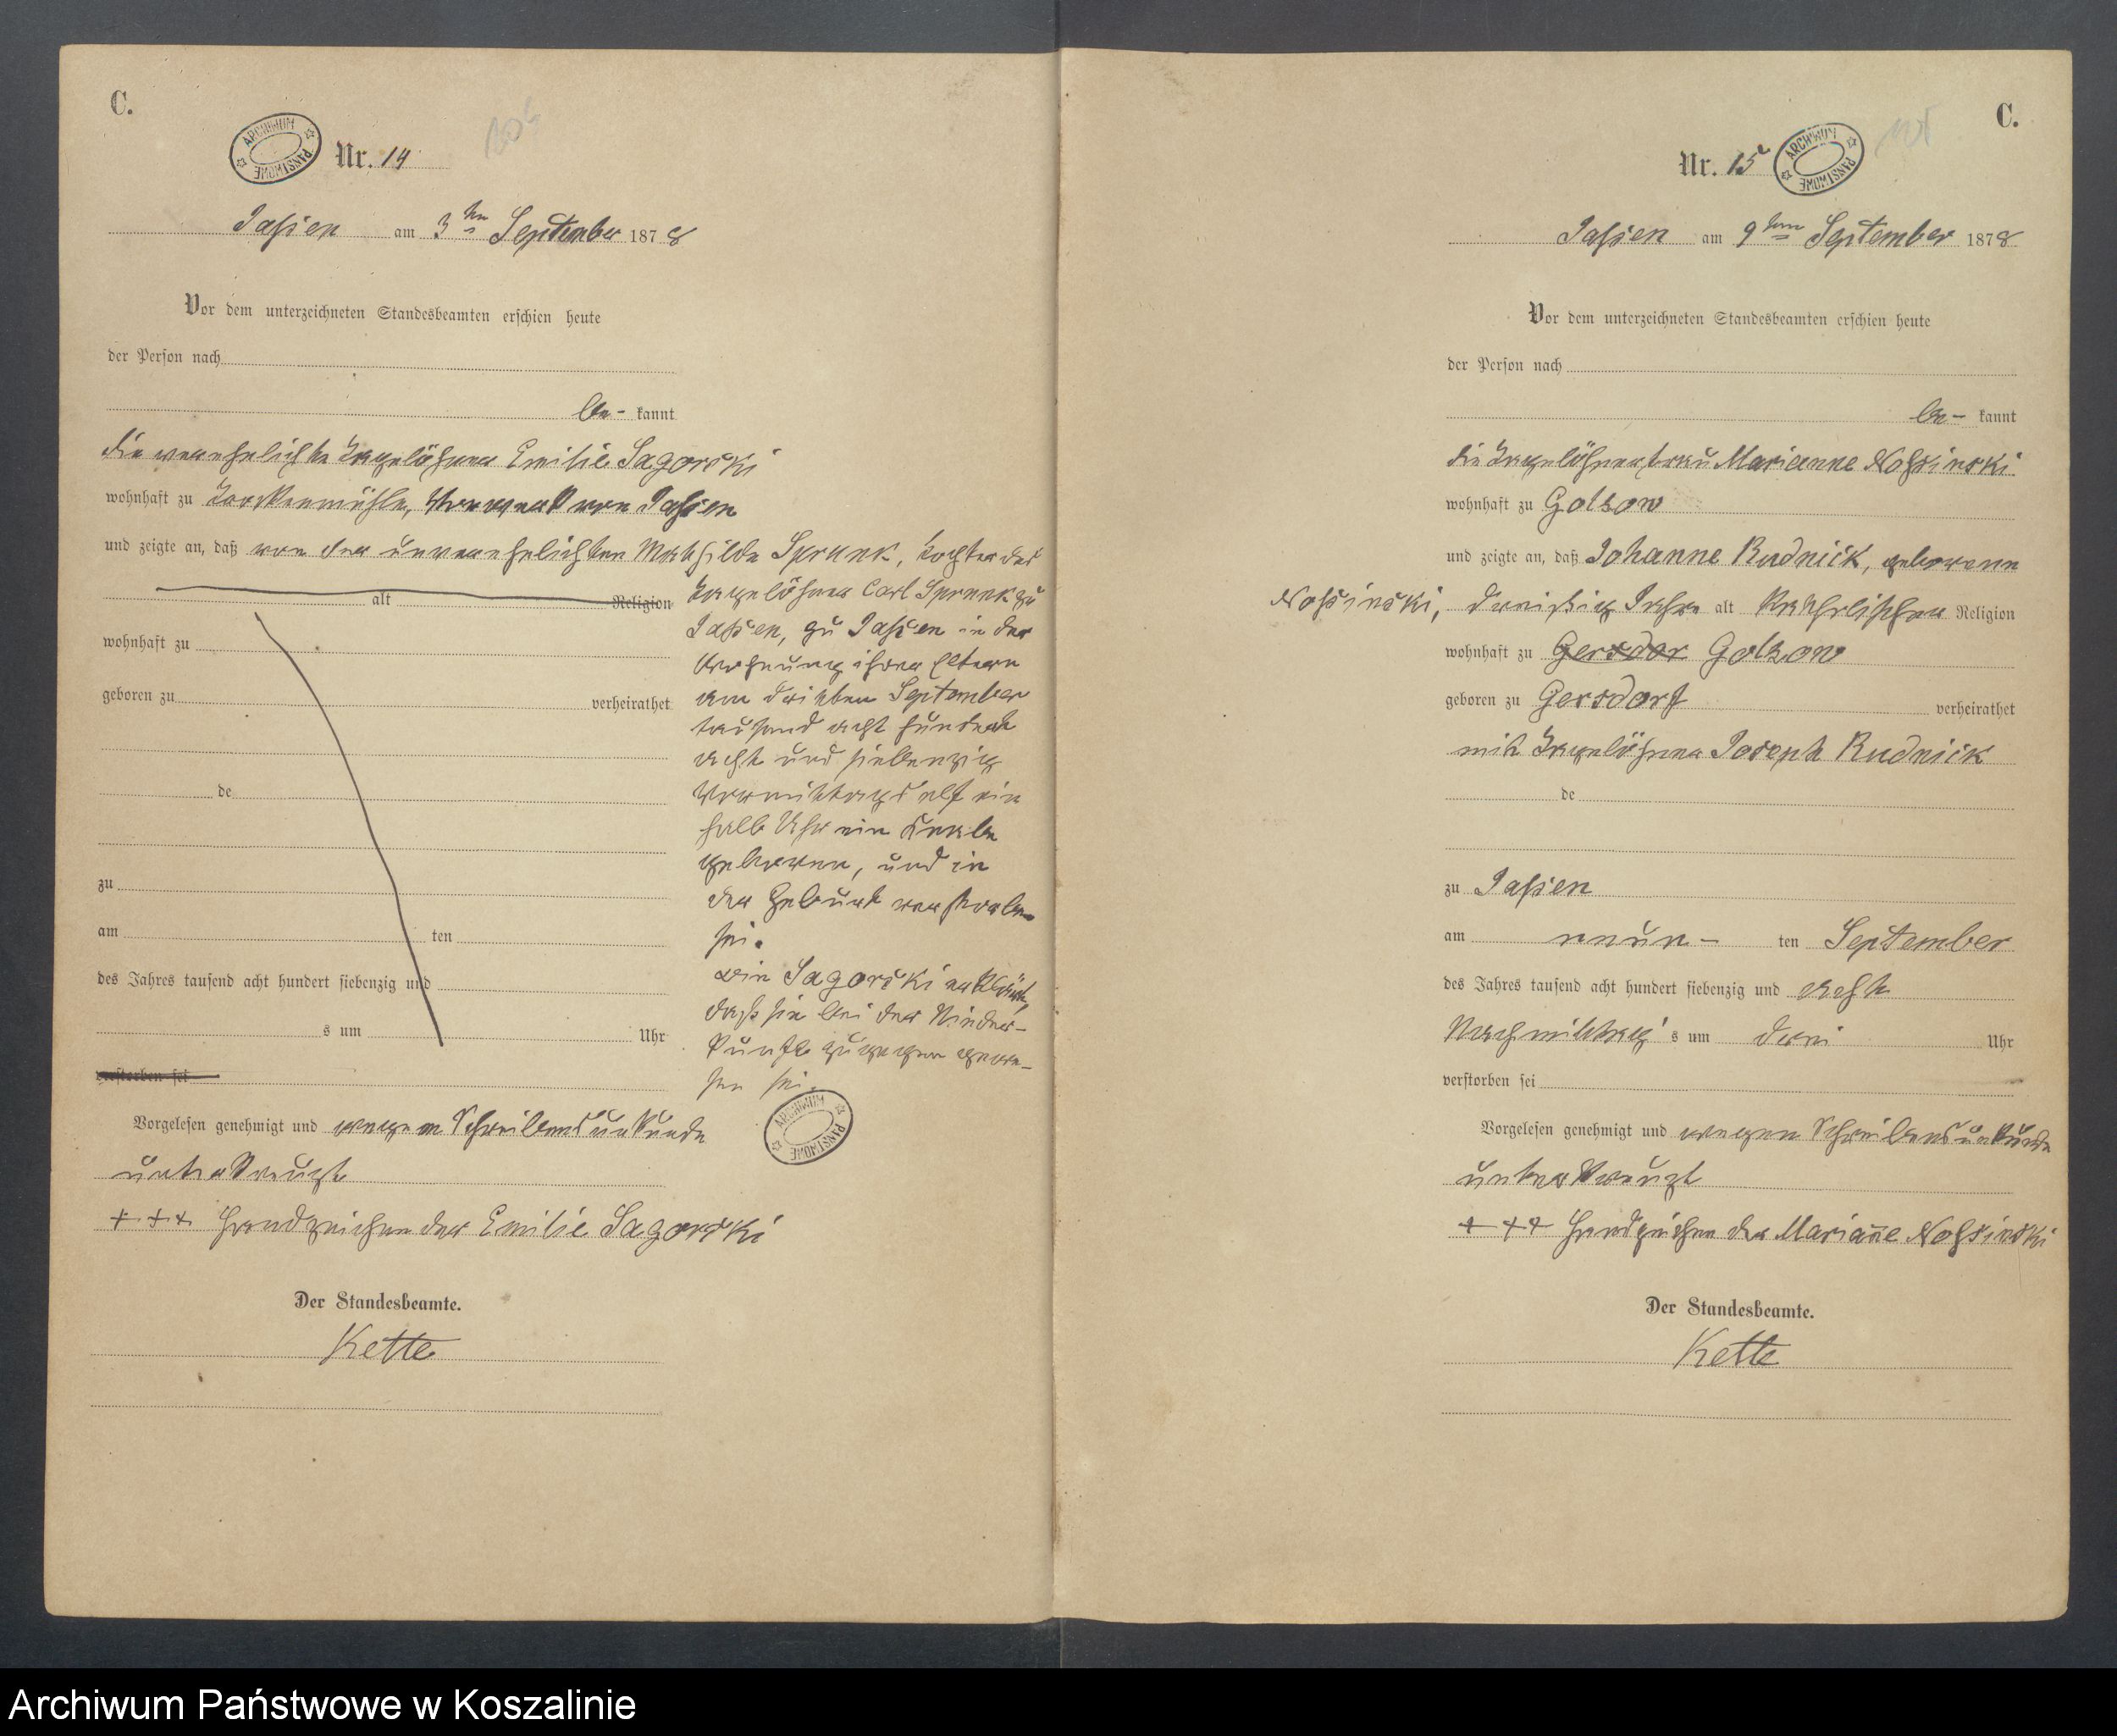 C.
ARCHIWUM PAŃSTWOWE
Nr. 14
Jassen am 3ten September 1878
Vor dem unterzeichneten Standesbeamten erschien heute
der Person nach
be- kannt
die verehelichte Tagelöhner Emilie Sagorski
wohnhaft zu Vorwerk von Jassen
und zeigte an, daß von der unverehelichten Mathilde Sprunk, Tochter des
alt Religion
Tagelöhner Carl Sprunk zu
Jassen, zu Jassen in der
wohnhaft zu
Wohnung ihrer Eltern
geboren zu verheirathet
am dritten September
tausend acht hundert
acht und siebenzig
de
Vormittags elf ein
halb Uhr ein Knabe
geboren, und in
zu
der Geburt verstorben
am ten
sei.
des Jahres tausend acht hundert siebenzig und
Die Sagorski erklärte,
daß sie bei der Nieder-
s um Uhr
kunft zugegen gewe-
verstorben sei
sen sei.
ARCHIWUM PAŃSTWOWE
Vorgelesen genehmigt und wegen Schreibensunkunde
unterkreuzt
+ + + Handzeichen der Emilie Sagorski
Der Standesbeamte.
Kette
C.
Nr. 15
ARCHIWUM PAŃSTWOWE
Jassen am 9ten September 1878
Vor dem unterzeichneten Standesbeamten erschien heute
der Person nach
be- kannt
die Tagelöhnerfrau Marianne Nossinski
wohnhaft zu Golzow
und zeigte an, daß Johanne Rudnick, geborene
Nossinski, dreißig Jahre alt katholischer Religion
wohnhaft zu Gersdor Golzow
geboren zu Gersdorf verheirathet
mit Tagelöhner Joseph Rudnick
de
zu Jassen
am neun- ten September
des Jahres tausend acht hundert siebenzig und acht
Nachmittag's s um drei Uhr
verstorben sei
Vorgelesen genehmigt und wegen Schreibensunkunde
unterkreuzt
+ + + Handzeichen der Marian̄e Nossinski
Der Standesbeamte.
Kette
Archiwum Państwowe w Koszalinie